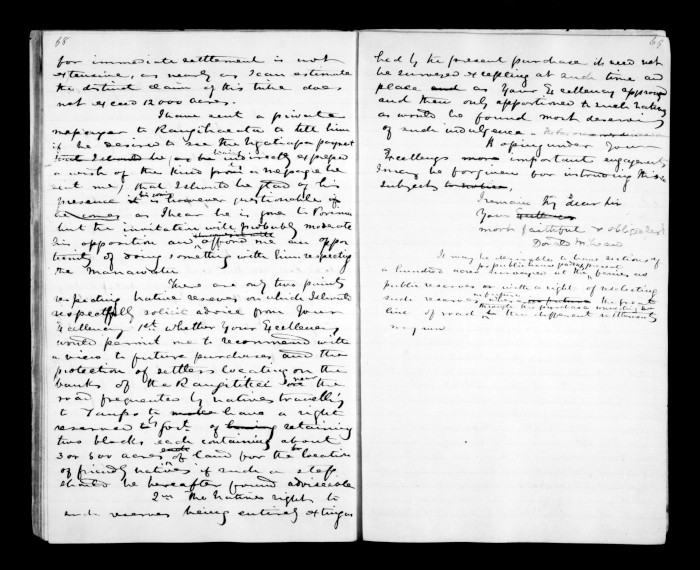 68
for immediate settlement is not
extensive, as nearly as I can estimate
the district claim of this tribe does
not exceed 12000 acres.
I have sent a private
messenger to Rangihaeata to tell him
if he desired to see the Ngatiapa payment
he indirectly expressed
a wish of the kind from a message he
sent me, that I should be glad of his
presence it is however questionable if
he comes as I hear he is gone to Porirua
but the invitation will probably moderate
his opposition and afford me an oppor
tunity of doing something with him respecting
the Manawatu
There are only two points
respecting native reserves on which I should
respectfully solicit advice from Your
Excellency 1st. whether Your Excellency
would permit me to recommend with
a view to future purchases and the
protection of settlers locating on the
banks of the Rangitikei near the
road frequented by natives travelling
to Taupo to make have a right
reserved to Govt. of having retaining
two blocks each containing about
3 or 500 acres of land for the location
of friendly natives if such a step
should be hereafter found adviseable
2nd The Natives right to
such reserves being entirely extinguis
69
hed by the present purchase it need not
be surveyed excepting at such time and
place and as Your Excellency approves
and then only apportioned to such natives
as would be found most deserving
of such indulgence
Hoping under Your
Excellencys more important engagements
I may be forgiven for intruding this
subject
I remain My dear Sir
Your
most faithful & obliged servt
Donald McLean
It may be desirable to have sections of
a hundred acres surveyed at the ferries as
public reserves or with a right of selecting
such reserves the great
line of road to the different settlements